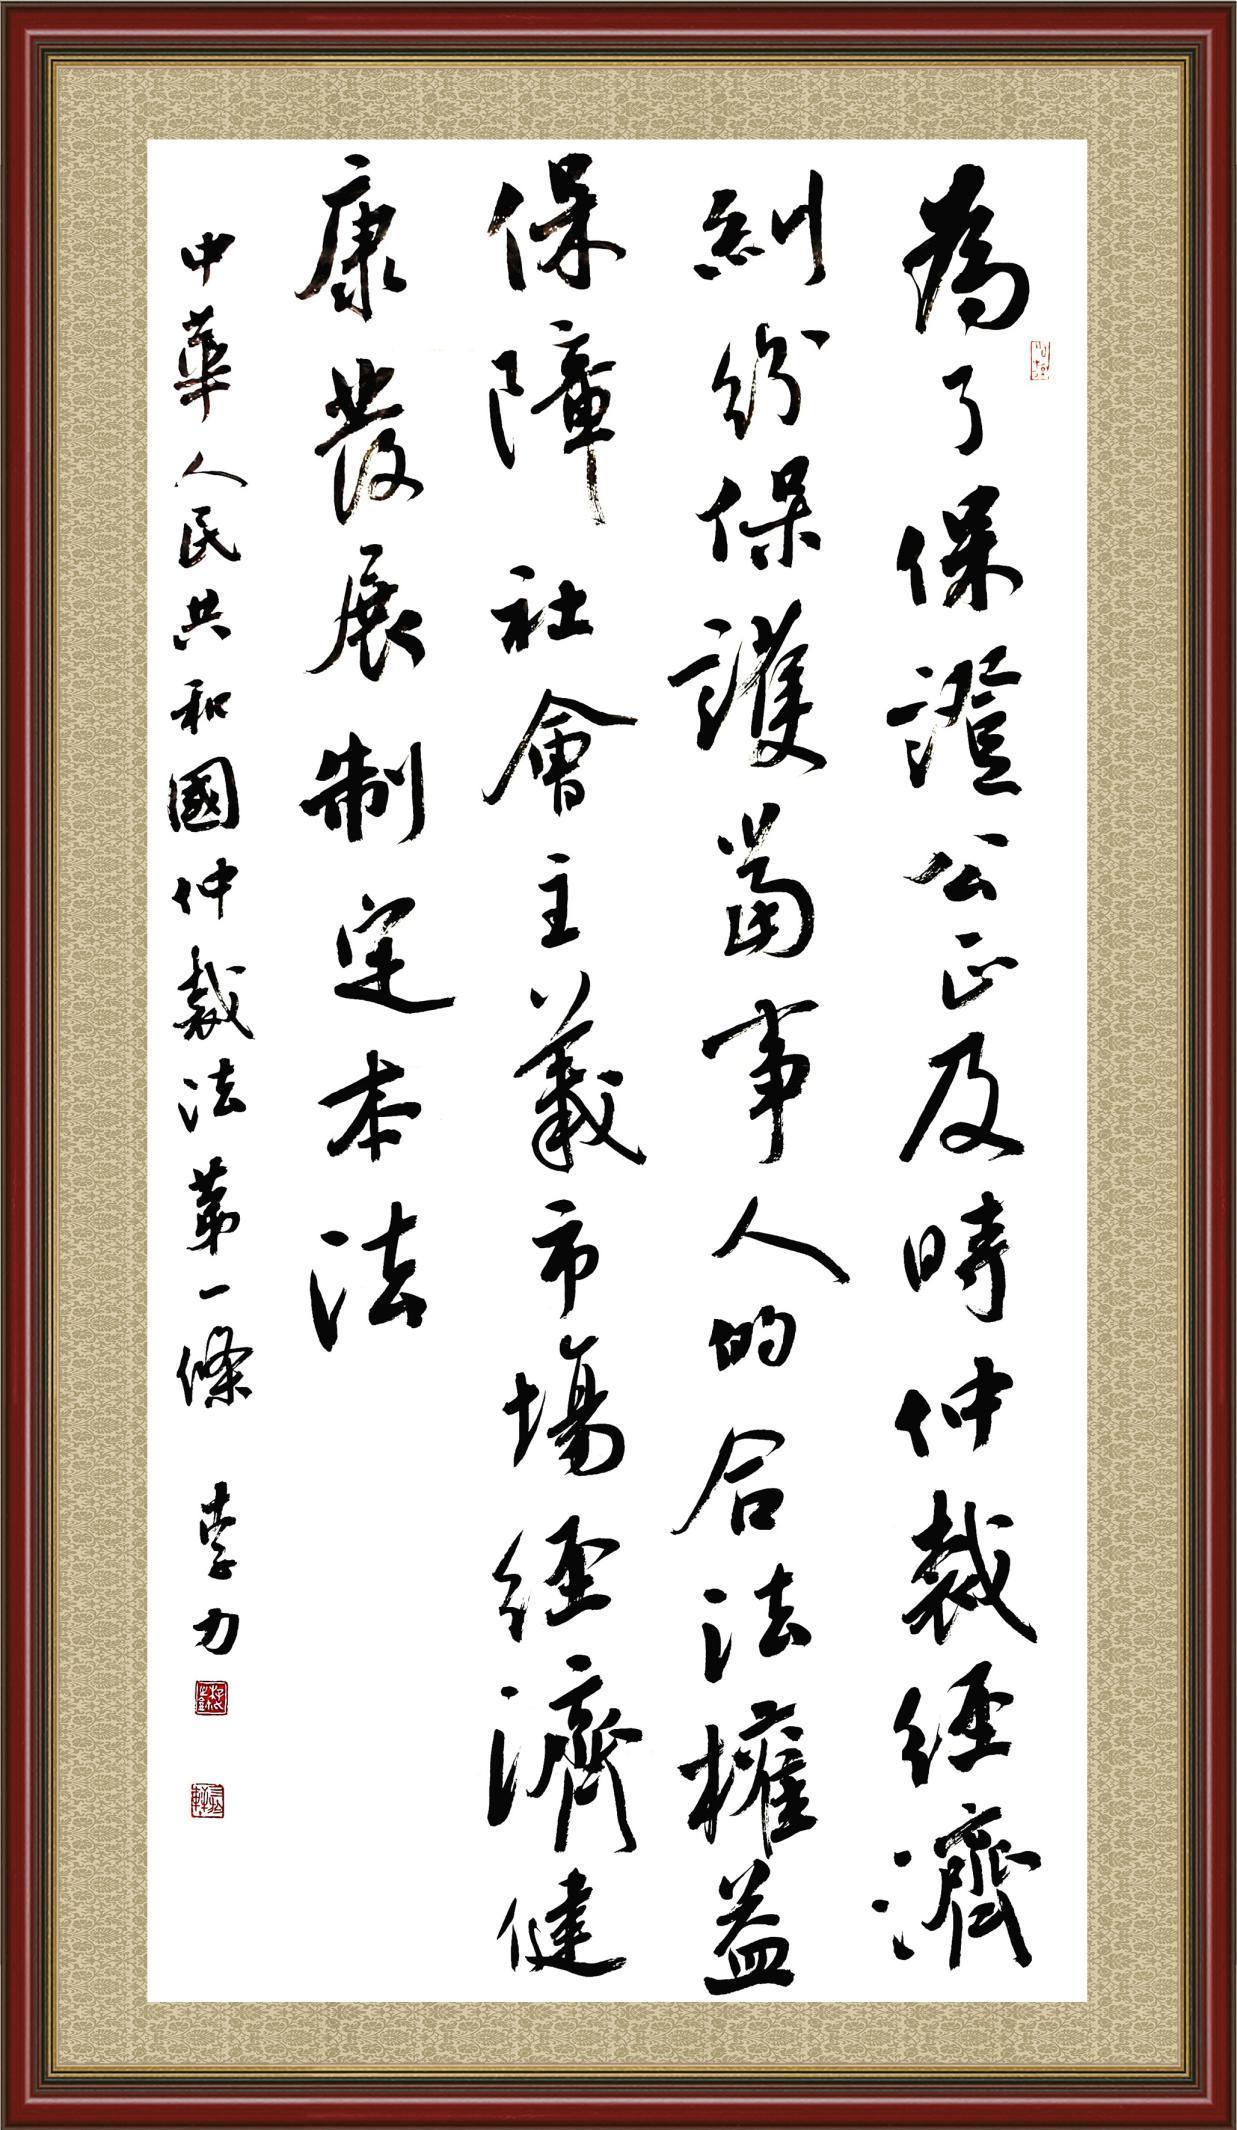 為了保證公正及時仲裁經濟
糾紛保護當事人的合法權益
保障社會主義市場經濟健
康發展制定本法
中華人民共和國仲裁法第一條 李力